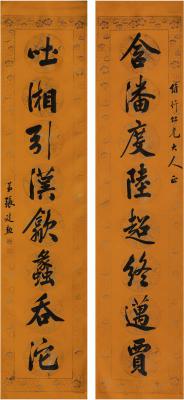 行仁兄大人正
含潘度陸超終邁賈
吐湘引漢歙蠡吞沱
弟張建勳